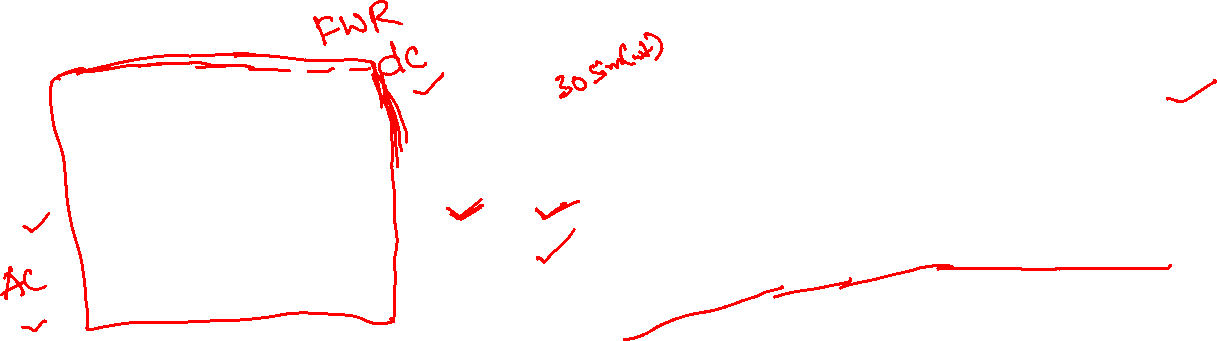 FWR
dC
30 sin(wt)
AC